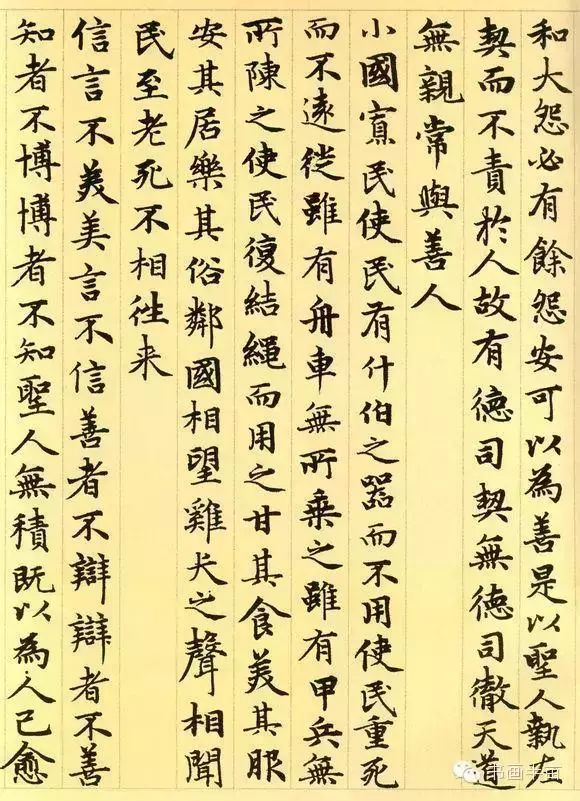 和大怨必有餘怨安可以為善是以聖人執左
契而不責於人故有德司契無德司徹天道
無親常與善人
小國寡民使民有什伯之器而不用使民重死
而不遠徙雖有舟車無所乘之雖有甲兵無
所陳之使民復結繩而用之甘其食美其服
安其居樂其俗鄰國相望雞犬之聲相聞
民至老死不相往来
信言不美美言不信善者不辯辯者不善
知者不博博者不知聖人無積既以為人己愈
书画手工